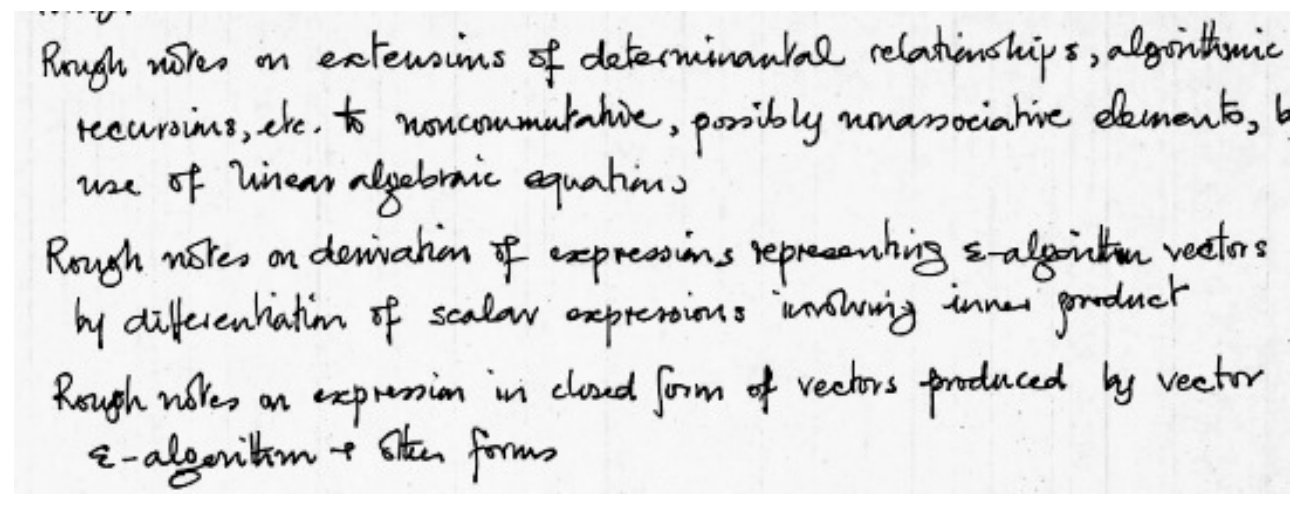 Rough notes on extensions of determinantal relationships, algorithmic
recursions, etc. to noncommutative, possibly nonassociative elements,
use of linear algebraic equations
Rough notes on derivation of expressions representing ε-algorithm vectors
by differentiation of scalar expressions involving inner product
Rough notes on expression in closed form of vectors produced by vector
ε-algorithm + other forms